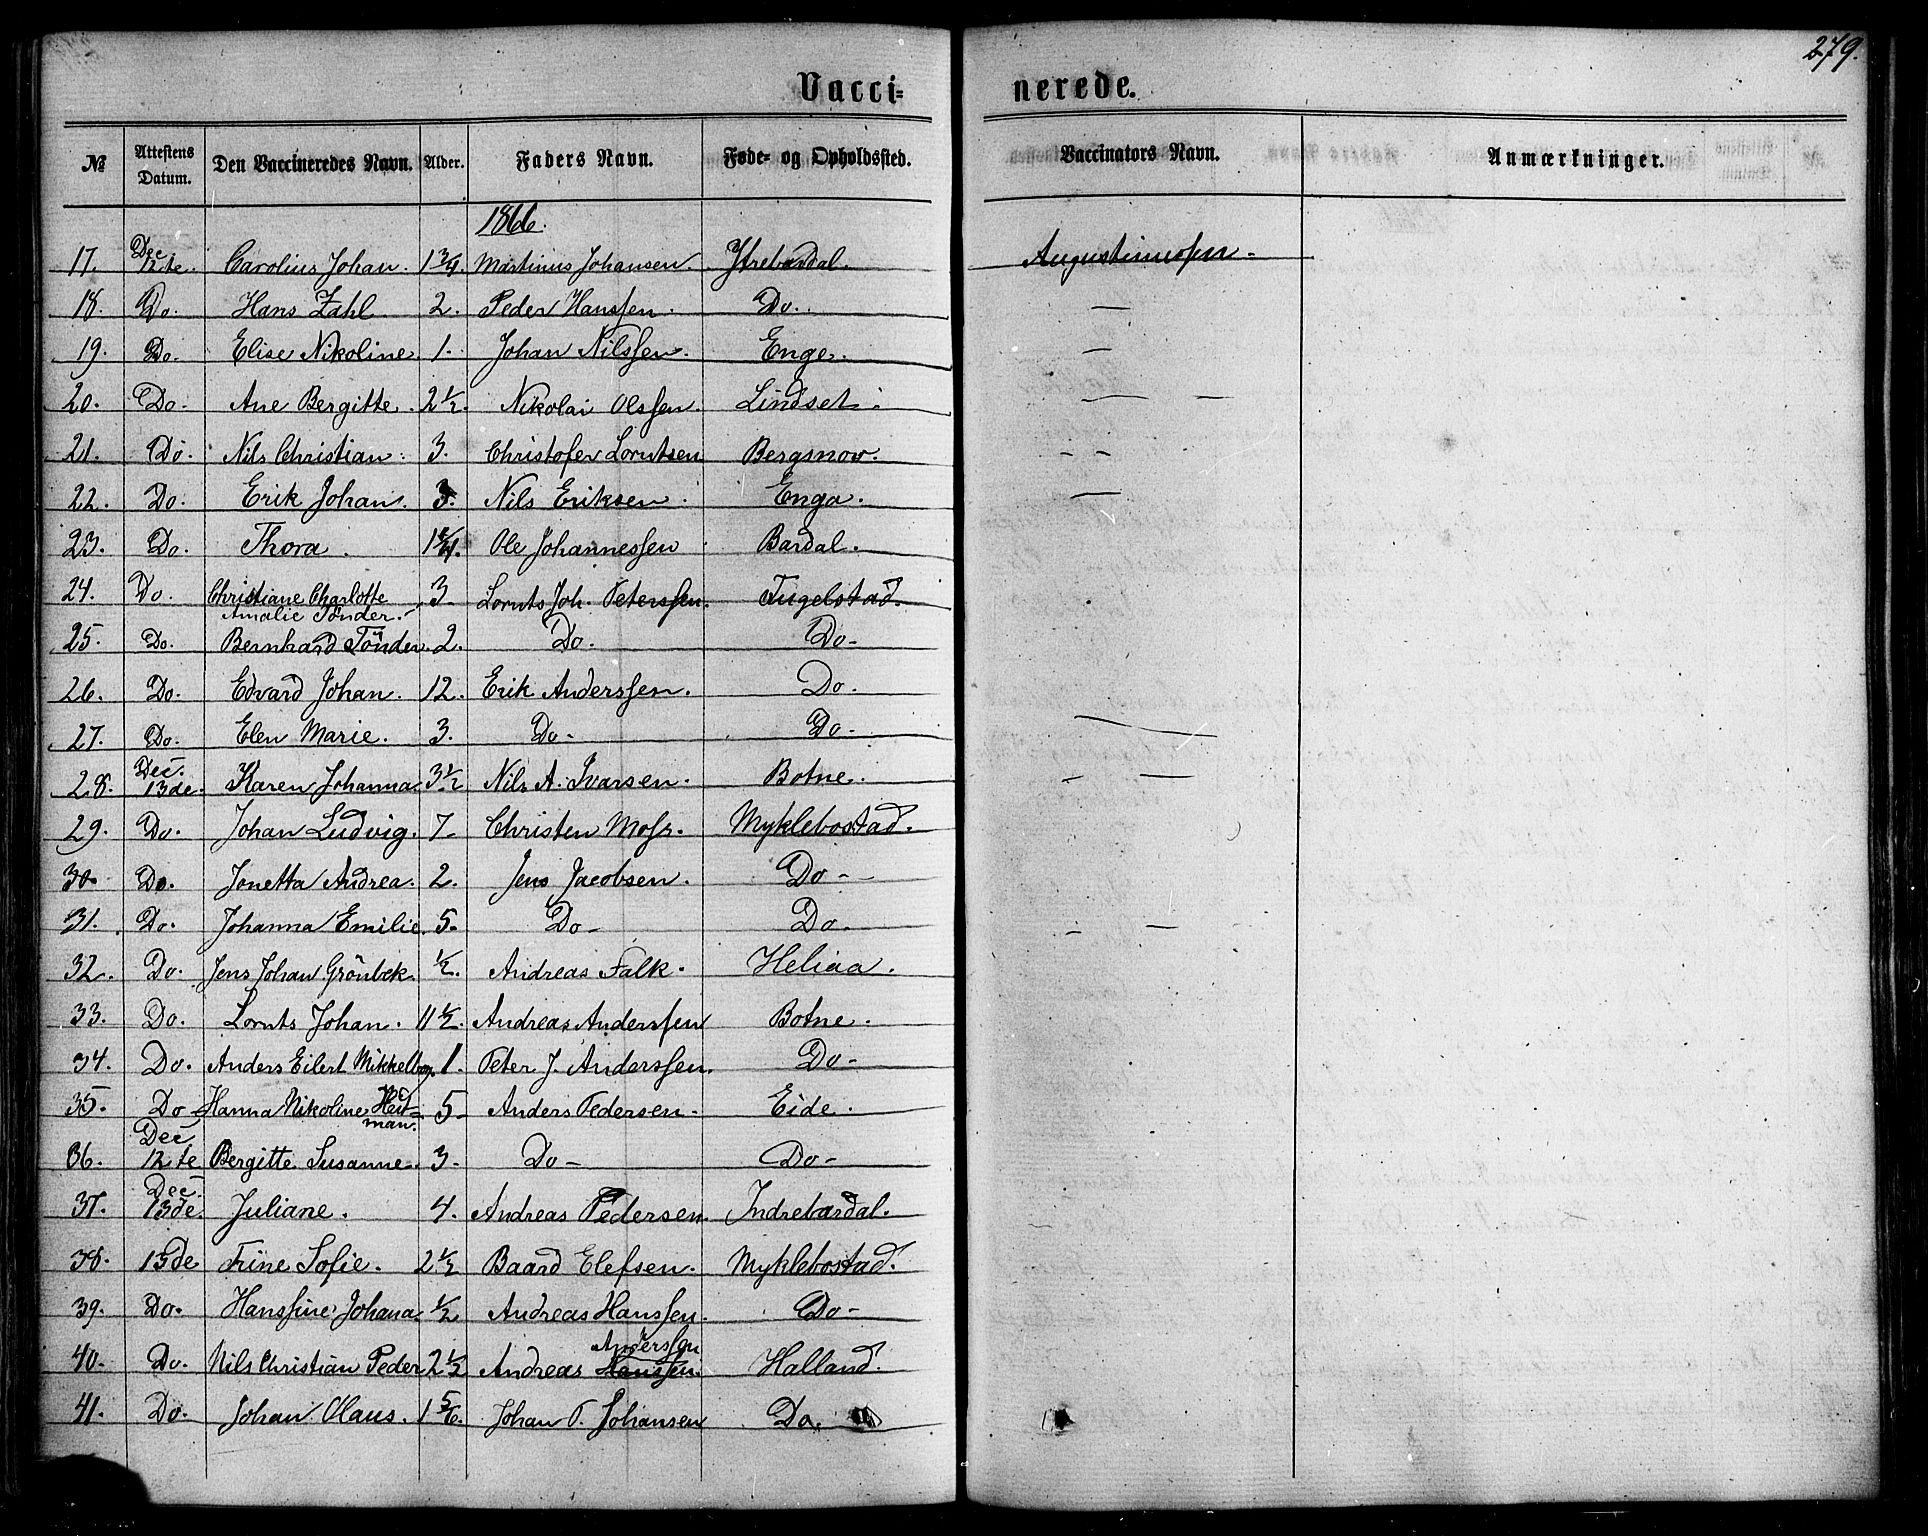 279.
Vacci= nerede.
№ Attestens Datum. Den Vaccineredes Navn. Alder. Faders Navn. Føde= og Opholdssted. Vaccinators Navn. Anmærkninger.
1866.
17. Dec. 12te. Carolius Johan. 1 3/4 Martinus Johansen. Ytrebardal. Augustinussen
18. Do. Hans Zahl 2. Peder Hanssen. Do. —
19. Do. Elise Nikoline 1. Johan Nilssen. Enge. —
20. Do. Ane Bergitte. 2 1/2. Nikolai Olssen. Lindset. — —
21. Do. Nils Christian. 3. Christofer Lorntsen Bergsnov. - -
22. Do. Erik Johan. 3. Nils Eriksen. Enga. —
23. Do. Thora. Ole Johannessen Bardal.
24. Do. Christiane Charlotte Amalie Tönder. 3 Lornts Joh. Peterssen. Tugelstad.
25. Do. Bernhard Tönder. 2. Do. Do-
26. Do. Edvard Johan. 12. Erik Anderssen. Do.
27. Do. Elen Marie. 3. Do- Do-
28. Dec. 13de. Karen Johanna. 3 1/2 Nils A. Ivarsen. Botne. - —
29. Do. Johan Ludvig. 7- Christen Mosr. Myklebostad.
30. Do. Jonetta Andrea. 2. Jens Jacobsen. Do-
31. Do. Johanna Emilie. 5. Do- Do. - —
32. Do. Jens Johan Grönbek 1/2. Andreas Falk. Heliaa.
33. Do. Lornts Johan. 11 1/2. Andreas Anderssen Botne.
34. Do. Anders Eilert Mikkelborg. 1. Peter J. Anderssen. Do-
35. Do Hanna Nikoline Heitman. 5- Anders Pedersen. Eide.
36. Dec. 12te Bergitte Susanne. 3. Do- Do-
37. Dec. 13de. Juliane. 4. Andreas Pedersen. Indrebardal.
38. 13de Trine Sofie. 2 1/2 Baard Elefsen. Myklebostad.
39. Do. Hanssine Johana. 1/2 Andreas Hanssen. Do-
40. Do. Nils Christian Peder 2 1/2 Andreas Hanssen. Anderssen Halland.
41. Do. Johan Olaus. 1 5/6. Johan P. Johansen Do.